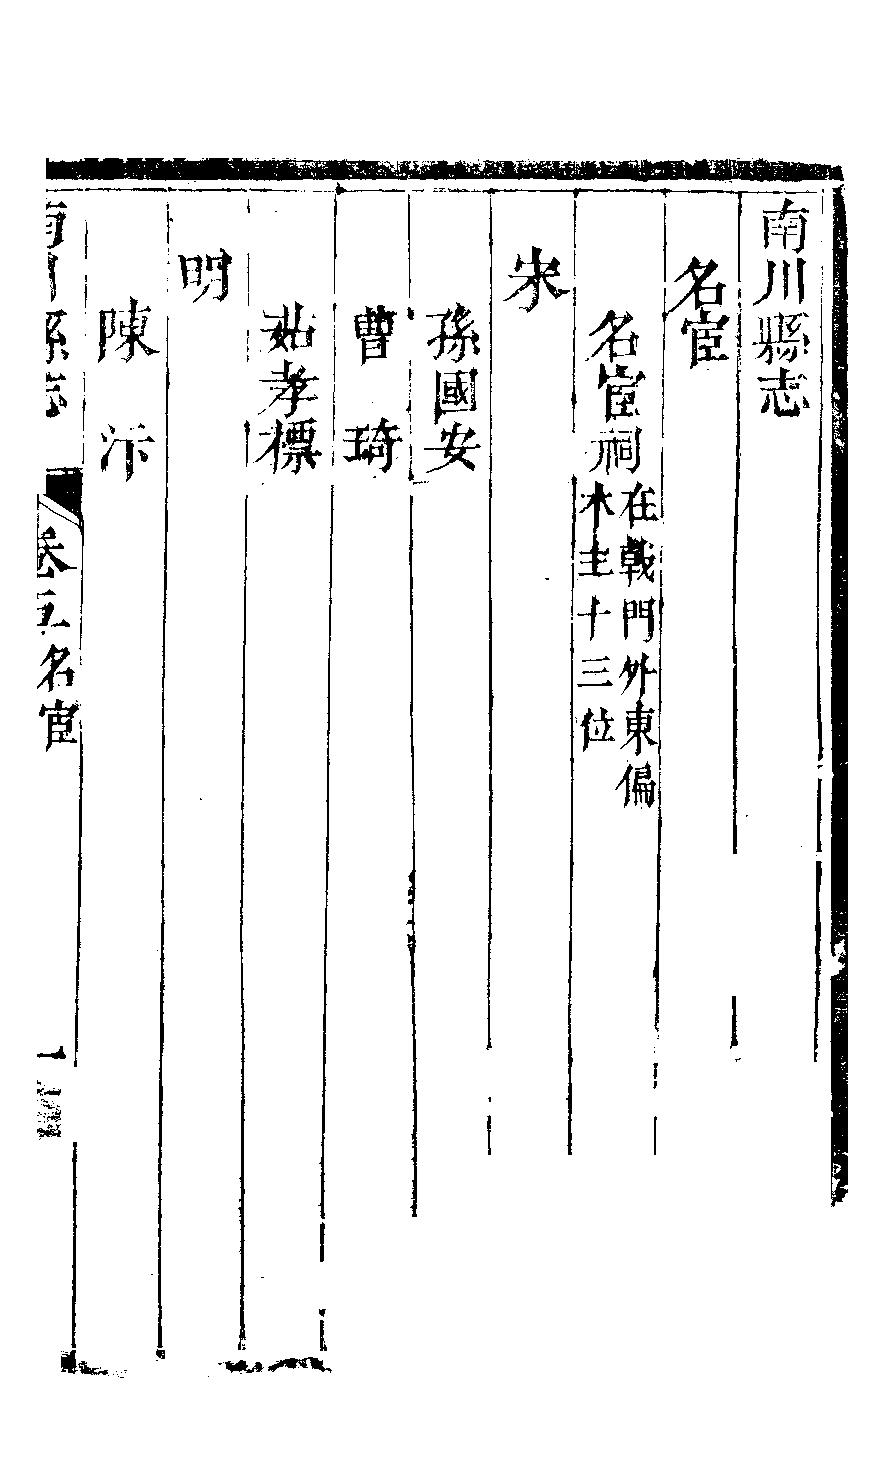 南川縣志
名宦
名宦祠在戟門外東偏
木主十三位
宋
孫國安
曹琦
茹孝標
明
陳沂
南川縣志 卷五名宦 一